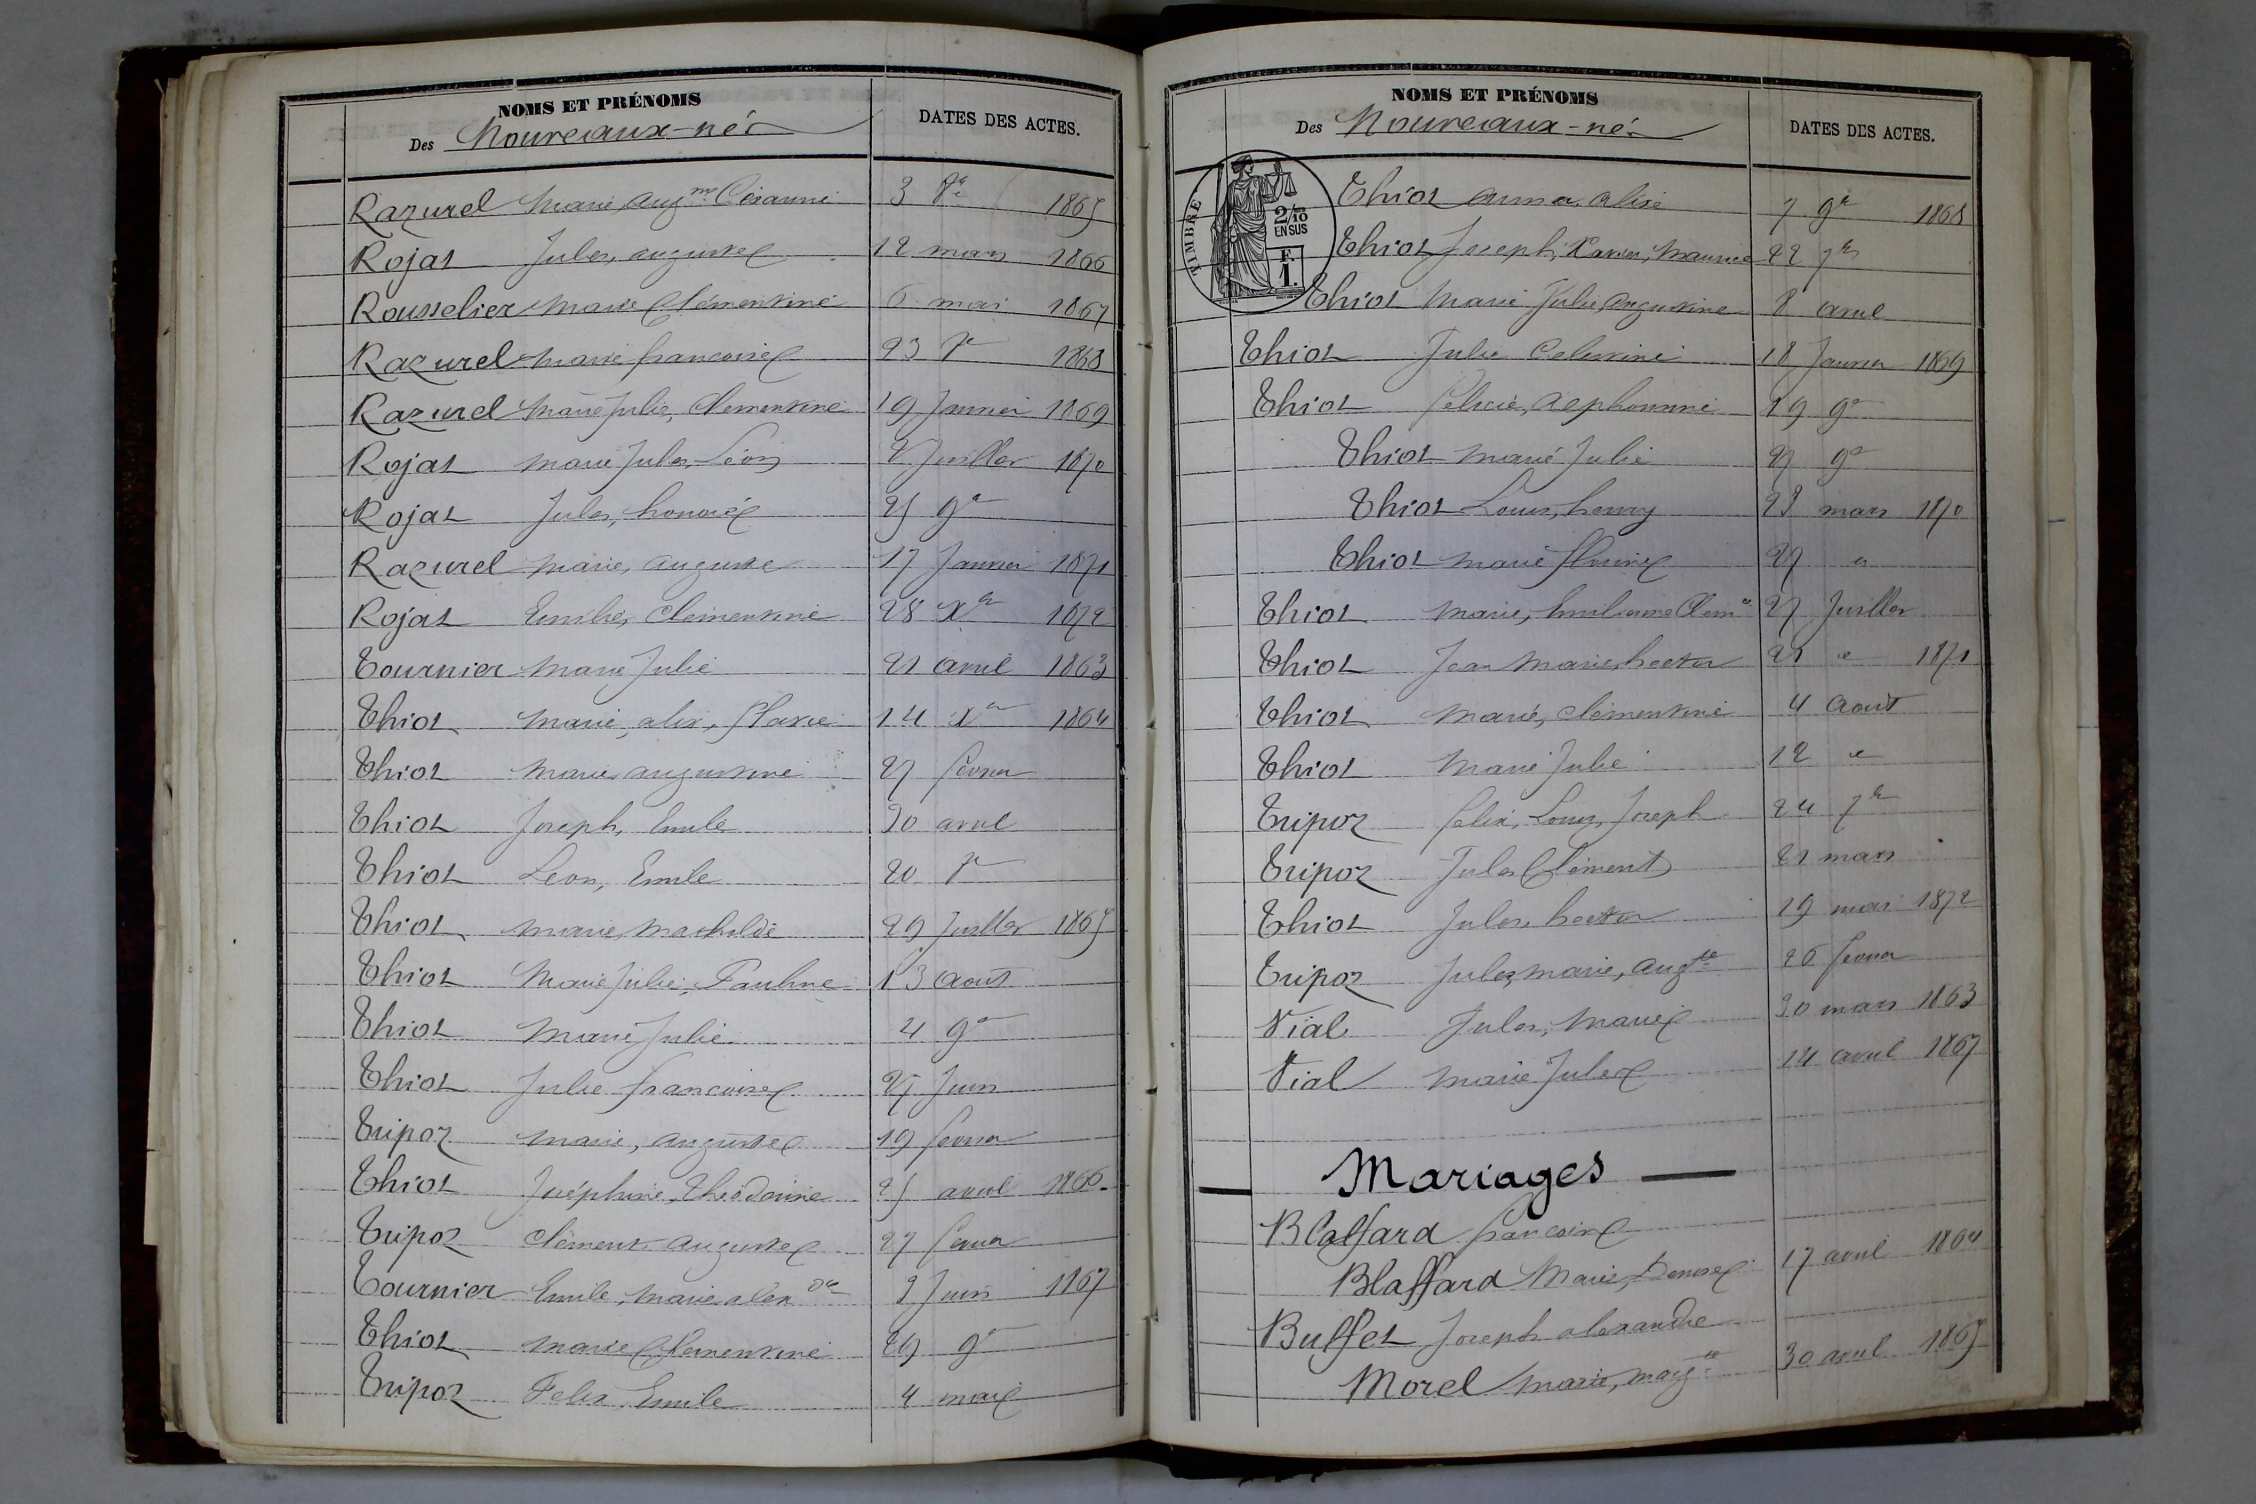 NOMS ET PRÉNOMS
Des Nouveaux-nés DATES DES ACTES.
Razurel Marie, Aug ne Césarine 3 1865
Rojat Jules, auguste 12 mars 1866
Rousselier Marie Clémentine 6 mai 1867
Razurel Marie francoise 23 1868
Razurel Marie Julie, Clementine 19 Janvier 1869
Rojat Marie Jules, Léon Juillet 1870
Rojat Jules, honoré 25 9re
Razurel Marie, auguste 17 Janvier 1871
Rojat Emilie, Clementine 28 Xre 1872
Tournier Marie Julie 21 avril 1863
Thiot Marie, alix, flavie 14 Xre 1864
Thiot Marie augustine 27 fevrier
Thiot Joseph, Emile 30 avril
Thiot Leon, Emile 20
Thiot Marie Mathilde 29 Juillet 1865
Thiot Marie Julie, Pauline 13 aout
Thiot Marie Julie 4 9re
Thiot Julie francoise 27 Juin
Tripoz Marie, auguste 19 fevrier
Thiot Joséphine, Théodorine 25 avril 1866
Tripoz Clément auguste 27 fevrier
Tournier Emile, Marie alex dre Juin 1867
Thiot Marie Clementine 29 9re
Tripoz Felix, Emile 4 mai
NOMS ET PRÉNOMS
Des Nouveaux-nés DATES DES ACTES.
TIMBRE
2/10
EN SUS
F.
1.
Thiot anna, alixe 7 9re 1868
Thiot Joseph, Xavier, Maurice 22 7re
Thiot Marie Julie Augustine 8 avril
Thiot Julie Celestine 18 Janvier 1869
Thiot Felicie, alphonsine 19 9re
Thiot Marie Julie 27 9re
Thiot Louis, henry 23 mars 1870
Thiot Marie 27 "
Thiot Marie, Emilienne Clem ce 27 Juillet
Thiot Jean Marie, hector 21 " 1871
Thiot Marie, Clémentine 4 Aout
Thiot Marie Julie 12 "
Tripoz felix, Louis, Joseph 24 7re
Tripoz Jules Clément 21 mars
Thiot Jules, hector 19 mai 1872
Tripoz Jules, marie, aug te 26 fevrier
Vial Jules, Marie 30 mars 1863
Vial Marie Jules 14 avril 1867
Mariages
Blaffard francois
Blaffard Marie, Denise 17 avril 1864
Buffet Joseph alexandre
Morel Marie, marg te 30 avril 1865